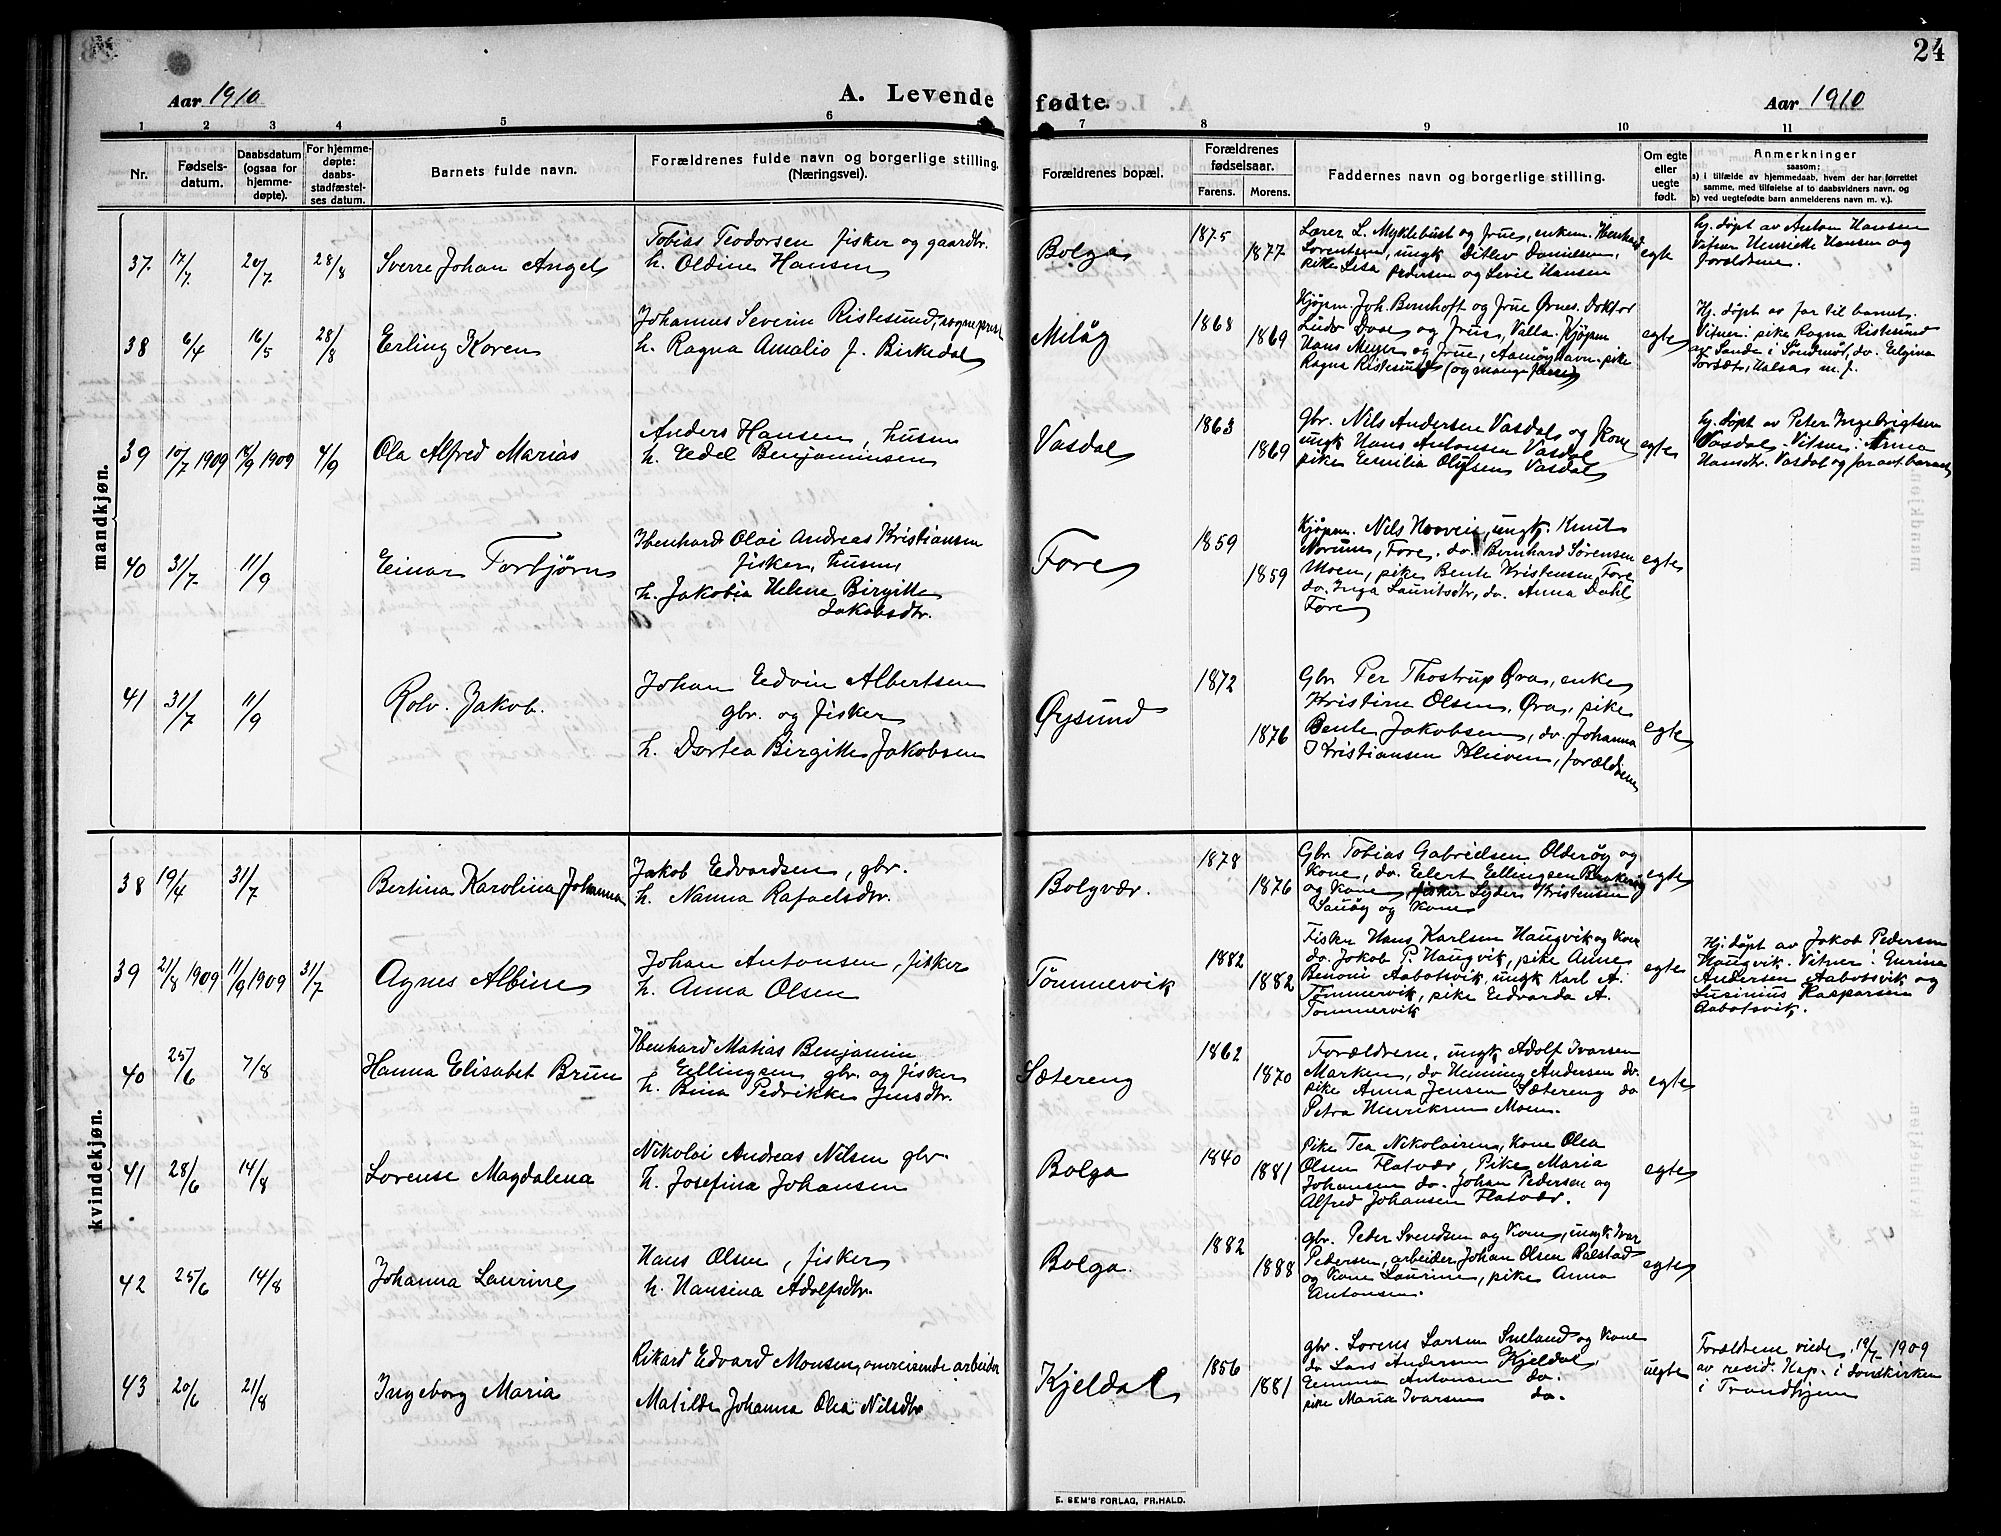 24
Aar 1910
A. Levende fødte.
Aar 1910
1 2 3 4 5 6 7 8 9 10 11
Nr.
Fødsels-
datum.
Daabsdatum
(ogsaa for
hjemme-
døpte).
For hjemme-
døpte: daabs-
stadfæstel-
ses datum.
Barnets fulde navn.
Forældrenes fulde navn og borgerlige stilling.
(Næringsvei).
Forældrenes bopæl.
Forældrenes
fødselsaar.
Farens. Morens.
Faddernes navn og borgerlige stilling.
Om egte
eller
uegte
født.
Anmerkninger
saasom:
a) i tilfælde av hjemmedaab, hvem der har forrettet
samme, med tilføielse af to daabsvidners navn, og
b) ved uegtefødte barn anmelderens navn m. v.).
mandkjøn.
37. 17/7 20/7 28/8 Sverre Johan Angel
Tobias Teodorsen fisker og gaardbr.
h. Oldine Hansen
Bolga
1875 1877
Lærer L. Myklebust og frue, enkem. Ibenhard
Lorentsen, ungk Ditlev Danielsen,
pike Lisa Pedersen og Levie Hansen
egte
Hj. døpt av Anton Hansen
Vitner Henrikke Hansen og
forældrene.
38 6/4 16/5 28/8 Erling Koren
Johannes Severin Ristesund, sogneprest
h. Ragna Amalie f. Birkedal
Meløy
1868 1869
Kjøpm. Joh. Bernhoft og frue Ørnes. Doktor
Ludv Daae og frue, Valla. Kjøpm
Hans Meyer og frue, Aamøyhavn. pike
Ragna Ristesund (og mange flere)
egte
Hj. døpt av far til barnet.
Vitner: pike Ragna Ristesund
av Sande i Søndmør, do. Elgina
Torsæt, Halsa m. f.
39 10/7 1909 12/9 1909 4/9 Ola Alfred Marias
Anders Hansen, husm
h. Edel Benjaminsen
Vasdal
1863 1869
Gbr. Nils Andersen Vasdal og Kone
ungk Hans Antonsen Vasdal
pike Emilia Olufsen Vasdal
egte
Hj. døpt av Peter Ingebrigtsen
Vasdal. Vitner: Anna
Hansdtr. Vasdal og far av barnet
40 31/7 11/9 Einar Torbjørn
Ibenhard Olai Andreas Kristiansen
fisker, husm,
h. Jakobia Helene Birgitte
Jakobsdtr.
Fore
1859 1859
Kjøpm. Nils Hooveie, ungk. Knut
Norum, Fore. do. Bernhard Sørensen
Moen, pike Bente Kristensen Fore
do. Inga Lauritsdtr, do. Anna Dahl
Fore
egte
41 31/7 11/9 Rolv. Jakob.
Johan Edvin Albertsen
gbr. og fisker
h. Dortea Birgitte Jakobsen
Øysund
1872 1876
Gbr Per Thostrup Øra, enke
Kristine Olsen, Øra, pike
Bente Jakobsen, do. Johanna
Kristiansen Kleiven, forældrene
egte
kvindekjøn.
38 19/4 31/7 Bertina Karolina Johanna
Jakob Edvardsen, gbr.
h. Nanna Rafaelsdtr.
Bolgvær.
1878 1876
Gbr Tobias Gabrielsen Olderøy og
Kone, do. Eilert Ellingsen
og Kone, fisker Lyder Kristensen
og Kone
egte
39 21/8 1909 11/9 1909 31/7 Agnes Albine
Johan Antonsen, fisker
h. Anna Olsen
Tømmervik
1882 1882
Fisker Hans Karlsen Haugvik og Kone
do. Jakob P. Haugvik, pike Anne
Benoni Aabotsvik, ungk Karl A.
Tømmervik, pike Edvarda A.
Tømmervik
egte
Hj. døpt av Jakob Pedersen
Haugvik. Vitner: Gurina
Andersen Aabotsvik og
Lusinius Kasparsen
Aabotsvik.
40 25/6 7/8 Hanna Elisabet Brun
Ibenhard Matias Benjamin
Ellingsen gbr. og fisker
h. Bina Pedrikke Jensdtr.
Sætereng
1862 1870
Forældrene, ungk, Adolf Ivarsen
Marken, do Heming Andersen do.
pike Anna Jensen Sætereng do
Petra Henriksen Moen.
egte
41 28/6 14/8 Lorense Magdalena
Nikolai Andreas Nilsen gbr.
h. Josefina Johansen
Bolga
1840 1881
Pike Tea Nikolaisen, Kone Olea
Olsen Flatvær, Pike Maria
Johansen do. Johan Pedersen og
Alfred Johansen Flatvær.
egte
42 25/6 14/8 Johanna Laurine
Hans Olsen, fisker
h. Hansina Adolfsdtr.
Bolga.
1882 1888
gbr. Peder Svendsen og Kone, ungk Ivar
Pedersen, arbeider Johan Olsen Balstad
og Kone Laurine, pike Anna
Antonsen.
egte
43 20/6 21/8 Ingeborg Maria
Rikard Edvard Monsen, omreisende arbeider
Matilde Johanna Olea Nilsdtr
Kjeldal
1856 1881
gbr. Lorens Larsen Sneland og Kone
do Lars Andersen Kjeldal,
Emma Antonsen do.
pike Maria Ivarsen do.
uegte
Forældrene viede 19/7 1909
av resid. Kap. i Domkirken
i Trondhjem
E. SEM'S FORLAG, FR.HALD.